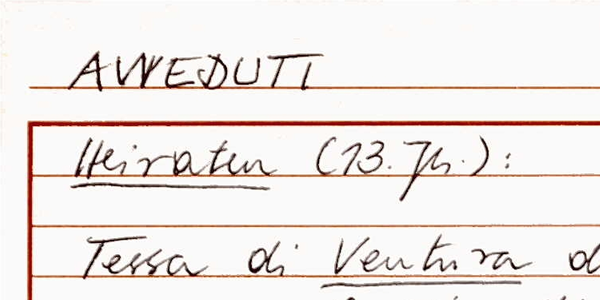 AVVEDUTI
Heiraten (13. Jh.):
Tessa di Ventura d